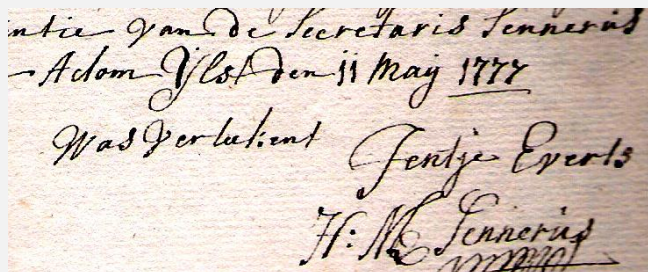 ntie van de Secretaris Fennerus
Actom Ylst den 11 Maÿ 1777
Was Vertekent Fentje Everts
H: M Fennerus